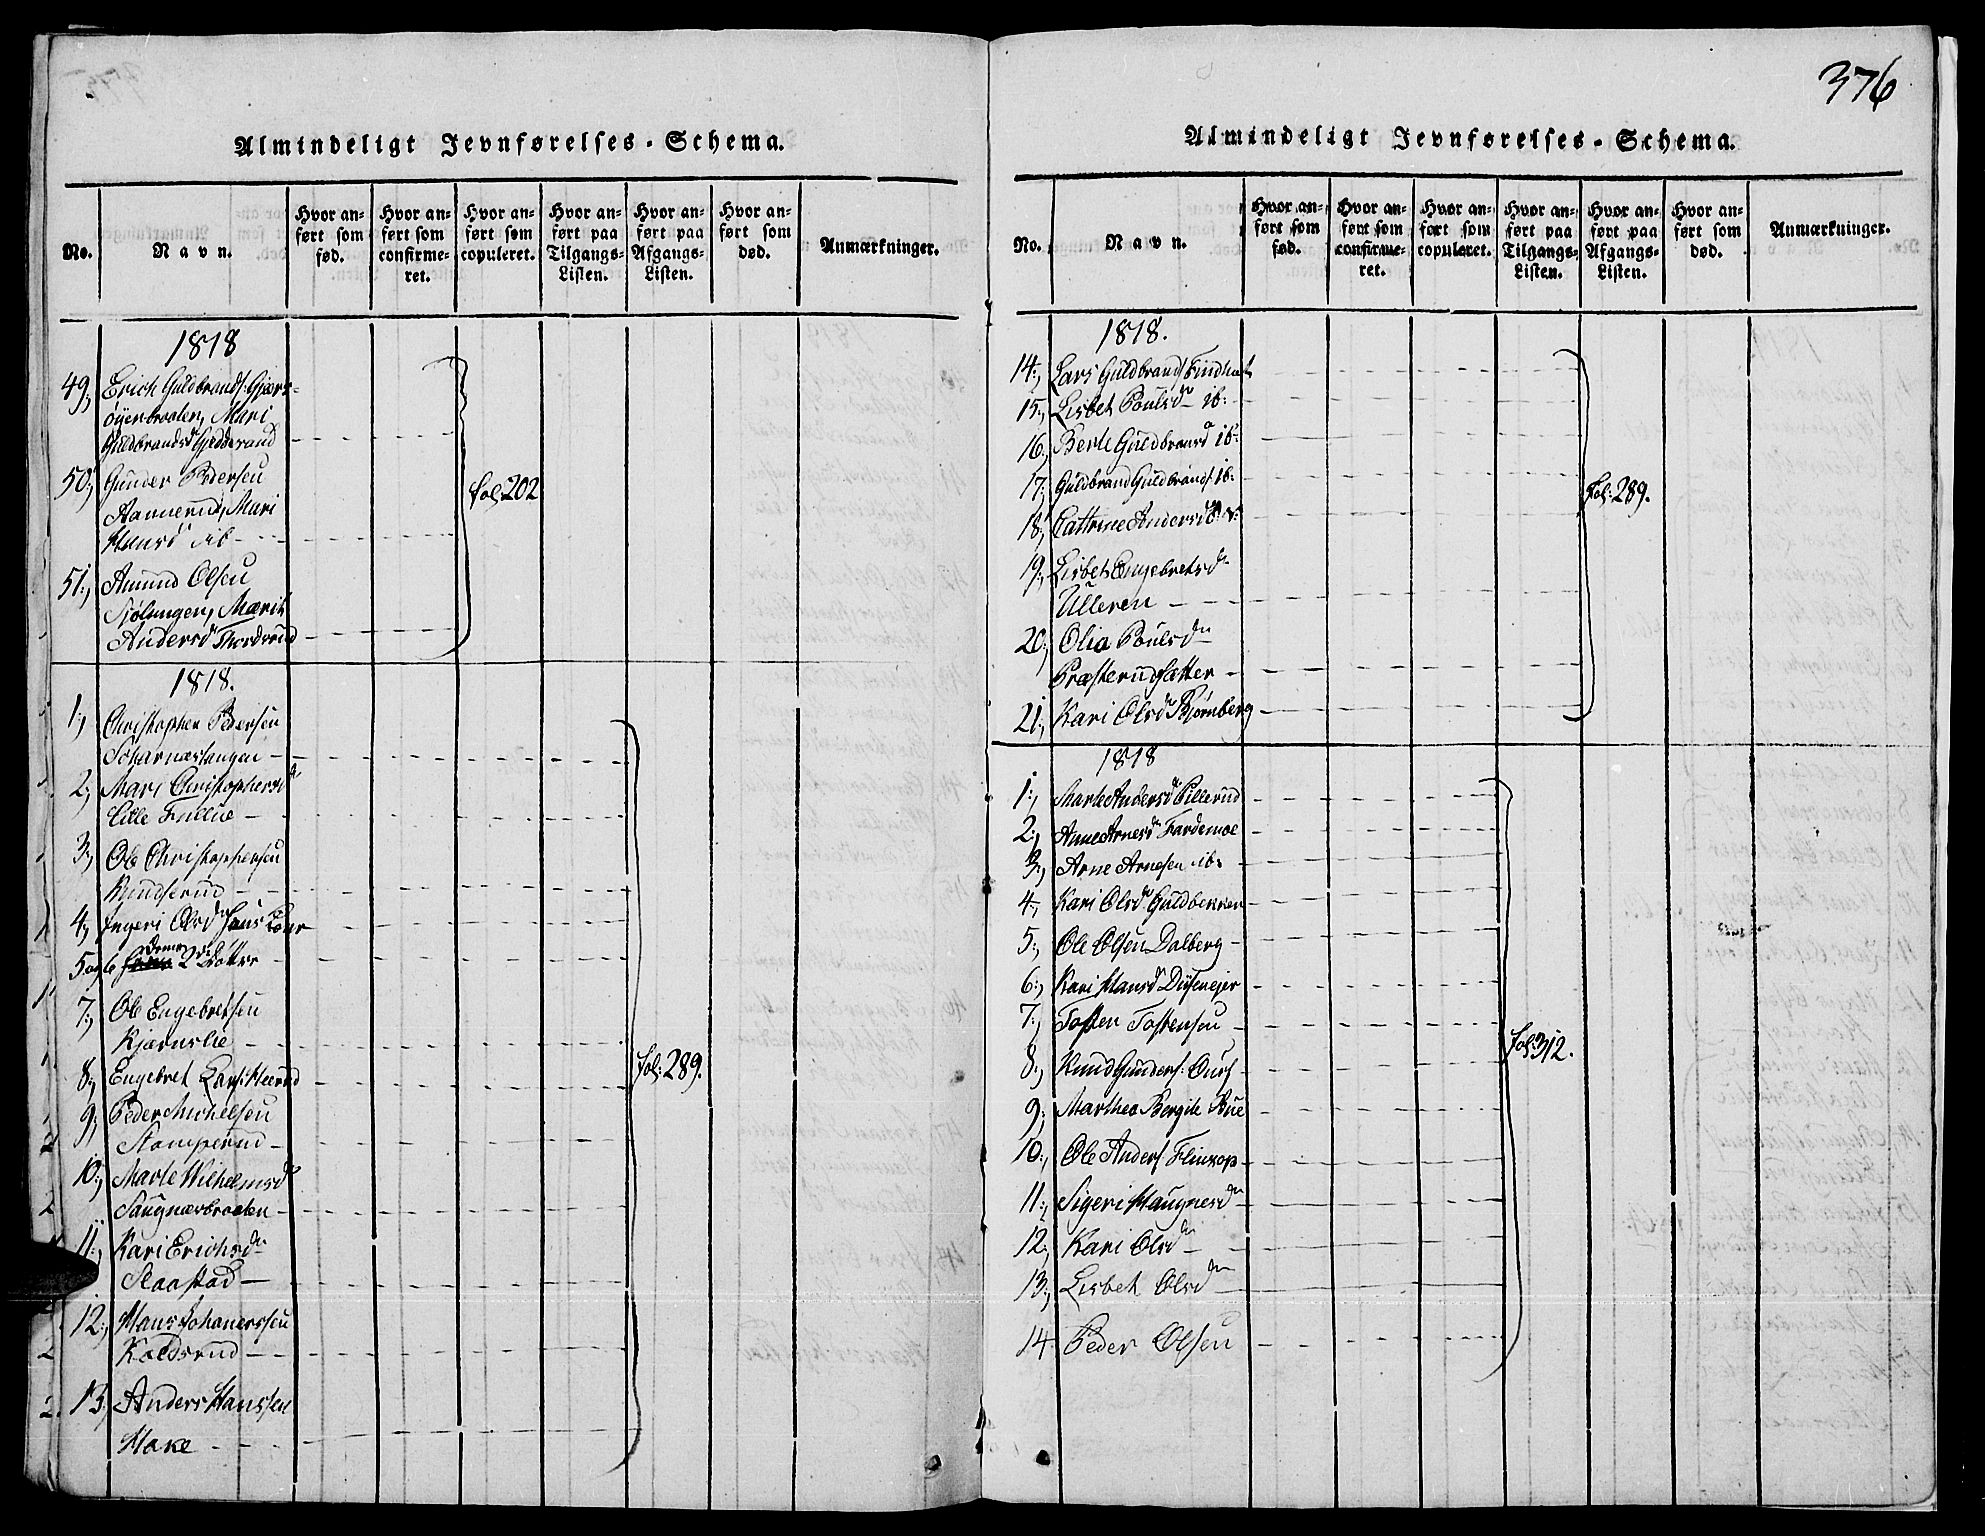 376
Almindeligt Jevnførelses-Schema.
No.
Navn.
Hvor anført som fød.
Hvor anført som confirmeret.
Hvor anført som copuleret.
Hvor anført paa Tilgangs-Listen.
Hvor anført paa Afgangs-Listen.
Hvor anført som død.
Anmærkninger.
1818
49, Erich Guldbrands: Gjærs-
øyenbraaten, Mari
Guldbrandsdn Gjedderand
50, Gunder Pedersen
Aannerud, Mari
Hansd ib
fol: 202
51, Amund Olsen
Sjølungen, Marit
Andersd Thordsrud
1818.
1, Christopher Pedersen
2, Mari Christophersd
Lille Fullue
3, Ole Christophersen
Knudserud
4, Ingeri Olsd
5 og 6 2de Døttre
7, Ole Engebretsen
Kjærnslie
8, Engebret Lars:
fol: 289.
9, Peder Michelsen
Stomperud
10, Marte Wilhelmsd
Saugnæsbraaten
11, Kari Erichsdn
Slaastad
12, Hans Johannessen
Koldsrud
13, Anders Hanssen
Hake
Almindeligt Jevnførelses-Schema.
No.
Navn.
Hvor anført som fød.
Hvor anført som confirmeret.
Hvor anført som copuleret.
Hvor anført paa Tilgangs-Listen.
Hvor anført paa Afgangs-Listen.
Hvor anført som død.
Anmærkninger.
1818.
14, Lars Guldbrands
15, Lisbet Poulsdn ib:
16, Berte Guldbransd ib:
17, Guldbrand Guldbrands ib:
fol: 289.
18, Cathrine Andersd
19, Lisbet Engebretsdn
Ulleren
20, Olia Poulsdn
Præsterudsætter
21, Kari Olsd Bjørnberg
1818
1, Marte Andersd Pillerud
2, Anne Arnesd Fardemoe
3, Arne Arnesen ib:
4, Kari Olsd Guldbekken
5, Ole Olsen Dalberg
6, Kari Hansd
7, Tosten Tostensen
fol: 312.
8, Knud Gunders:
9, Marthea Bergite
10, Ole Anders: Flinkop
11, Sigeri Haugnesdn
12, Kari Olsdn
13, Lisbet Olsdn
14 Peder Olsen